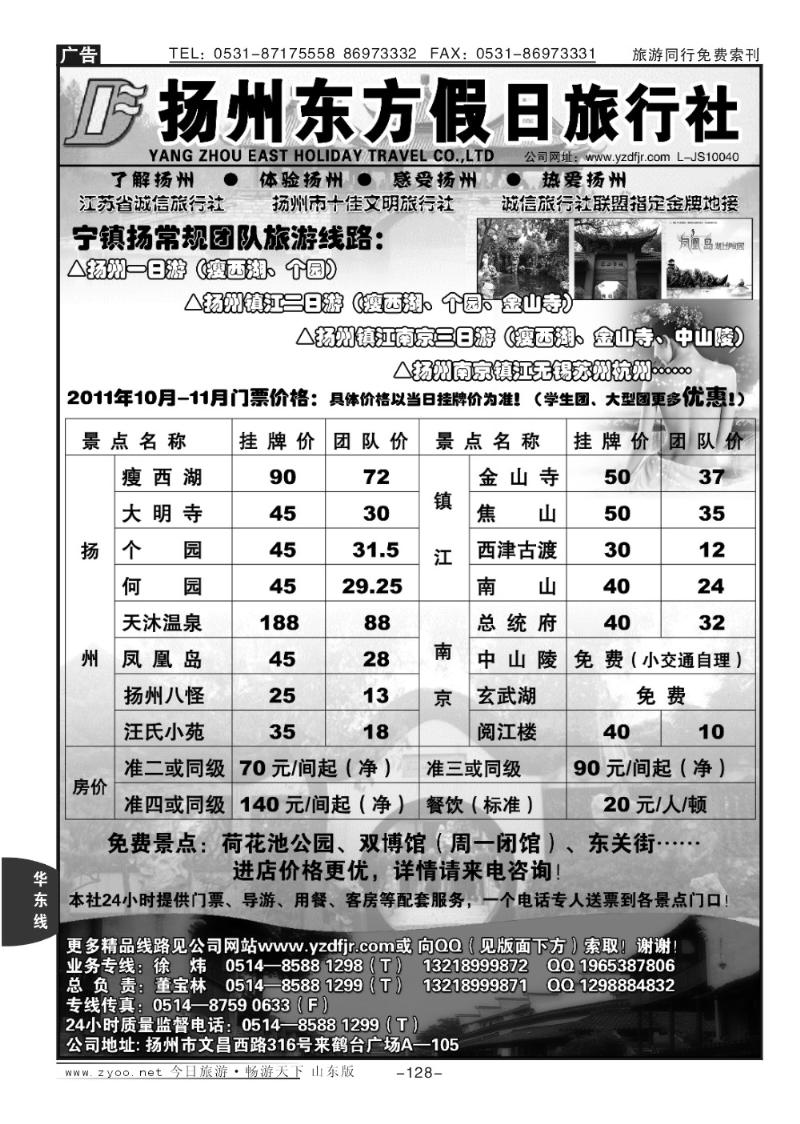 广告 TEL: 0531-87175558 86973332 FAX: 0531-86973331 旅游同行免费索刊
扬州东方假日旅行社
YANG ZHOU EAST HOLIDAY TRAVEL CO.,LTD 公司网址: www.yzdfjr.com L-JS10040
了解扬州 ● 体验扬州 ● 感受扬州 ● 热爱扬州
江苏省诚信旅行社 扬州市十佳文明旅行社 诚信旅行社联盟指定金牌地接
宁镇扬常规团队旅游线路:
凤凰岛
△扬州一日游（瘦西湖、个园）
△扬州镇江二日游（瘦西湖、个园、金山寺）
△扬州镇江南京三日游（瘦西湖、金山寺、中山陵）
△扬州南京镇江无锡苏州杭州……
2011年10月-11月门票价格: 具体价格以当日挂牌价为准!（学生团、大型团更多优惠!）
景点名称 挂牌价 团队价 景点名称 挂牌价 团队价
扬州 瘦西湖 90 72 镇江 金山寺 50 37
大明寺 45 30 焦山 50 35
个园 45 31.5 西津古渡 30 12
何园 45 29.25 南山 40 24
天沐温泉 188 88 南京 总统府 40 32
凤凰岛 45 28 中山陵 免费（小交通自理）
扬州八怪 25 13 玄武湖 免费
汪氏小苑 35 18 阅江楼 40 10
房价 准二或同级 70 元/间起（净） 准三或同级 90 元/间起（净）
准四或同级 140 元/间起（净） 餐饮（标准） 20 元/人/顿
免费景点: 荷花池公园、双博馆（周一闭馆）、东关街……
进店价格更优，详情请来电咨询!
本社24小时提供门票、导游、用餐、客房等配套服务，一个电话专人送票到各景点门口!
华东线
更多精品线路见公司网站www.yzdfjr.com或 向QQ（见版面下方）索取! 谢谢!
业务专线: 徐 炜 0514—8588 1298（T） 13218999872 QQ 1965387806
总 负 责: 董宝林 0514—8588 1299（T） 13218999871 QQ 1298884832
专线传真: 0514—8759 0633（F）
24小时质量监督电话: 0514—8588 1299（T）
公司地址: 扬州市文昌西路316号来鹤台广场A—105
www.zyoo.net 今日旅游·畅游天下 山东版 -128-